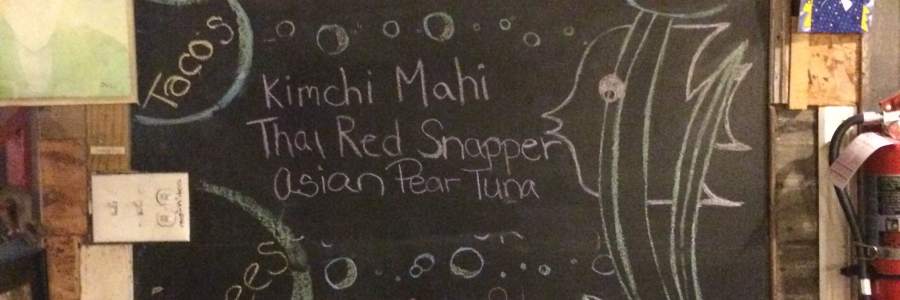 Taco's
Kimchi Mahi
Thai Red Snapper
Asian Pear Tuna